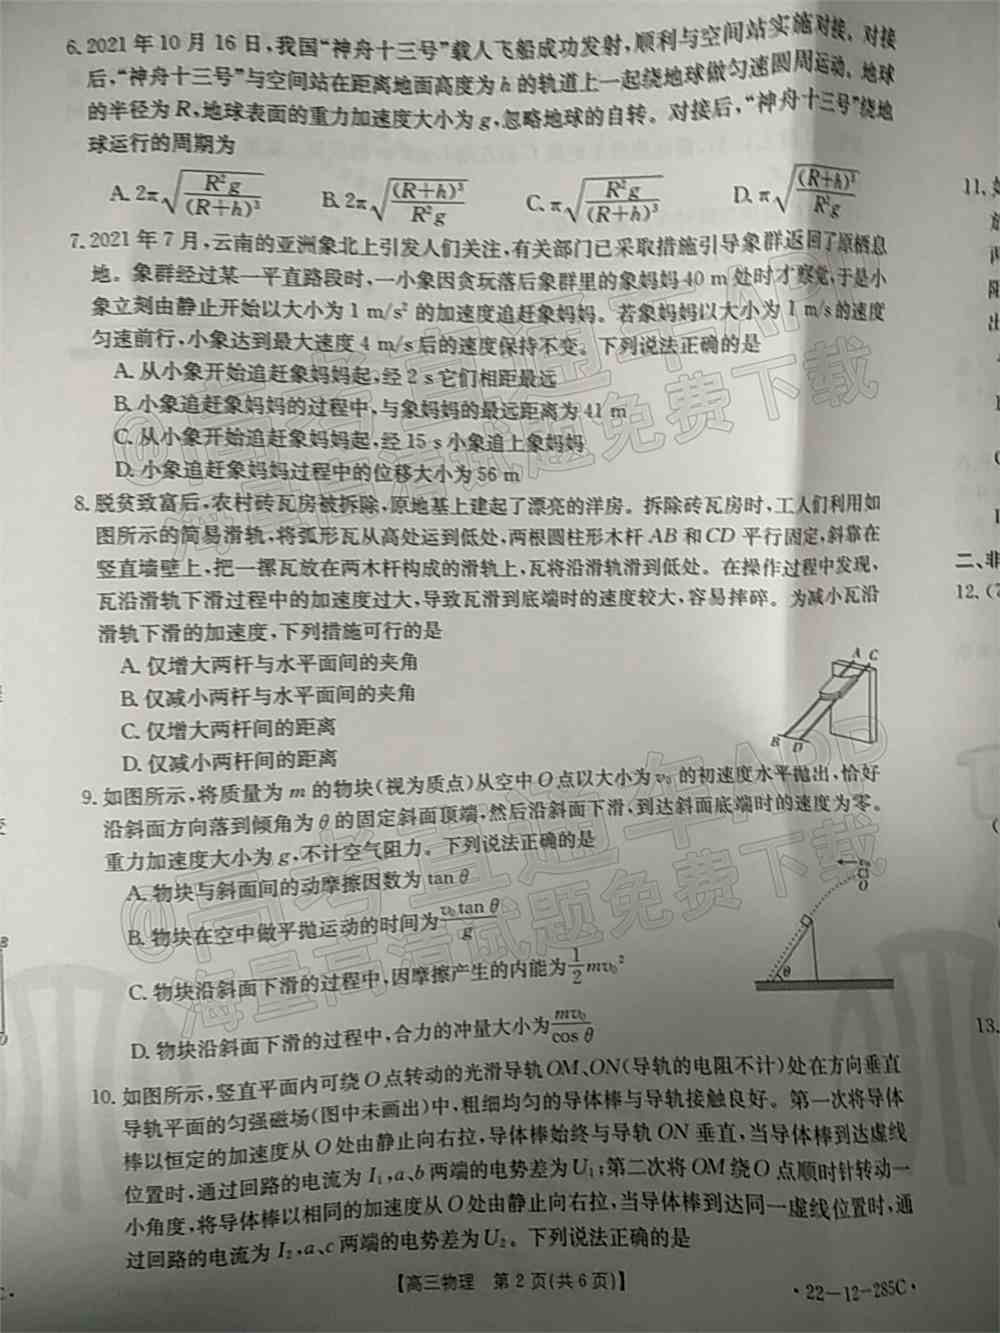 6. 2021 年 10 月 16 日,我国“神舟十三号”载人飞船成功发射,顺利与空间站实施对接。对接
后,“神舟十三号”与空间站在距离地面高度为 h 的轨道上一起绕地球做匀速圆周运动。地球
的半径为 R,地球表面的重力加速度大小为 g,忽略地球的自转。对接后,“神舟十三号”绕地
球运行的周期为
A. 2π√(R²g/(R+h)³) B. 2π√((R+h)³/R²g) C. π√(R²g/(R+h)³) D. π√((R+h)³/R²g)
7. 2021 年 7 月,云南的亚洲象北上引发人们关注,有关部门已采取措施引导象群返回了原栖息
地。象群经过某一平直路段时,一小象因贪玩落后象群里的象妈妈 40 m 处时才察觉,于是小
象立刻由静止开始以大小为 1 m/s² 的加速度追赶象妈妈。若象妈妈以大小为 1 m/s 的速度
匀速前行,小象达到最大速度 4 m/s 后的速度保持不变。下列说法正确的是
A. 从小象开始追赶象妈妈起,经 2 s 它们相距最远
B. 小象追赶象妈妈的过程中,与象妈妈的最远距离为 41 m
C. 从小象开始追赶象妈妈起,经 15 s 小象追上象妈妈
D. 小象追赶象妈妈过程中的位移大小为 56 m
8. 脱贫致富后,农村砖瓦房被拆除,原地基上建起了漂亮的洋房。拆除砖瓦房时,工人们利用如
图所示的简易滑轨,将弧形瓦从高处运到低处,两根圆柱形木杆 AB 和 CD 平行固定,斜靠在
竖直墙壁上,把一摞瓦放在两木杆构成的滑轨上,瓦将沿滑轨滑到低处。在操作过程中发现,
瓦沿滑轨下滑过程中的加速度过大,导致瓦滑到底端时的速度较大,容易摔碎。为减小瓦沿
滑轨下滑的加速度,下列措施可行的是
A. 仅增大两杆与水平面间的夹角
B. 仅减小两杆与水平面间的夹角
C. 仅增大两杆间的距离
D. 仅减小两杆间的距离
A C
B D
9. 如图所示,将质量为 m 的物块(视为质点)从空中 O 点以大小为 v₀ 的初速度水平抛出,恰好
沿斜面方向落到倾角为 θ 的固定斜面顶端,然后沿斜面下滑,到达斜面底端时的速度为零。
重力加速度大小为 g,不计空气阻力。下列说法正确的是
A. 物块与斜面间的动摩擦因数为 tan θ
B. 物块在空中做平抛运动的时间为 v₀tan θ/g
C. 物块沿斜面下滑的过程中,因摩擦产生的内能为 1/2 mv₀²
D. 物块沿斜面下滑的过程中,合力的冲量大小为 mv₀/cos θ
v₀
O
θ
10. 如图所示,竖直平面内可绕 O 点转动的光滑导轨 OM、ON(导轨的电阻不计)处在方向垂直
导轨平面的匀强磁场(图中未画出)中,粗细均匀的导体棒与导轨接触良好。第一次将导体
棒以恒定的加速度从 O 处由静止向右拉,导体棒始终与导轨 ON 垂直,当导体棒到达虚线
位置时,通过回路的电流为 I₁,a、b 两端的电势差为 U₁;第二次将 OM 绕 O 点顺时针转动一
小角度,将导体棒以相同的加速度从 O 处由静止向右拉,当导体棒到达同一虚线位置时,通
过回路的电流为 I₂,a、c 两端的电势差为 U₂。下列说法正确的是
【高三物理 第 2 页(共 6 页)】
·22—12—285C·
11.
二、非
12.
13.